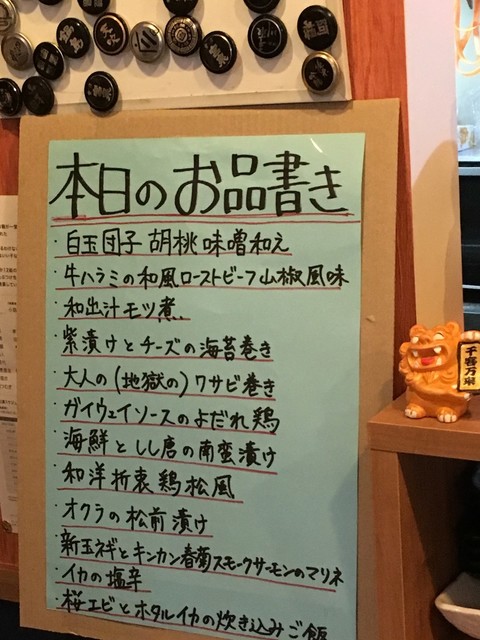 本日のお品書き
・白玉団子 胡桃味噌和え
・牛ハラミの和風ローストビーフ山椒風味
・和出汁モツ煮、
・紫漬けとチーズの海苔巻き
・大人の(地獄の)ワサビ巻き
・ガイウェイソースのよだれ鶏
・海鮮としし唐の南蛮漬け
・和洋折衷鶏松風
・オクラの松前漬け
・新玉ネギとキンカン春菊スモークサーモンのマリネ
・イカの塩辛
・桜エビとホタルイカの炊き込みご飯
千客万来